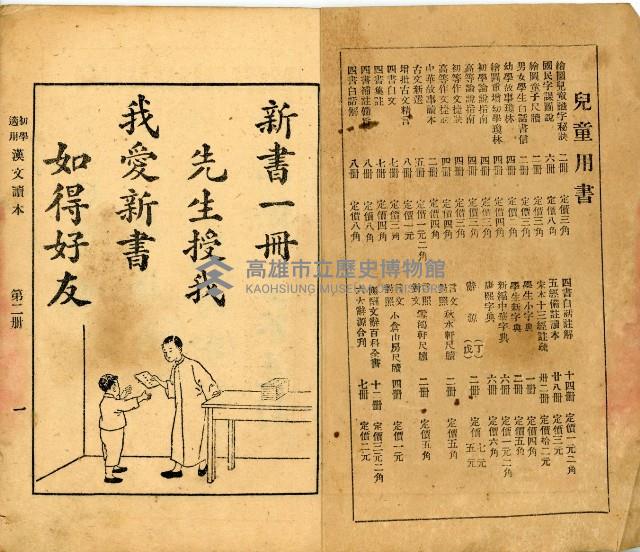 兒童用書
繪圖兒童識字秘訣 二冊 定價三角
國民字課圖說 六冊 定價八角
繪圖童子尺牘 二冊 定價三角
男女學生白話書信 二冊 定價三角
幼學故事瓊林 四冊 定價二角
繪圖重增幼學瓊林 四冊 定價四角
初學論說指南 四冊 定價三角
高等論說指南 四冊 定價三角
初等作文捷訣 四冊 定價四角
高等作文捷訣 四冊 定價四角
中華故事讀本 二冊 定價四角
古文新選 五冊 定價一元二角
增批古文精言 八冊 定價一元
四書白文 七冊 定價三角
四書集註 八冊 定價八角
四書補註備旨 七冊 定價八角
四書白話解 八冊 定價八角
四書白話註解 十四冊 定價一元二角
五經備註讀本 廿八冊 定價三元
宋本十三經註疏 卅二冊 定價拾二元
學生小字典 一冊 定價四角
學生新字典 二冊 定價五角
新編中華字典 六冊 定價一元二角
康熙字典 六冊 定價六角
辭源(丁) 二冊 定價七元
(戊) 二冊 定價五元
言文對照秋水軒尺牘 二冊 定價五角
言文對照雪鴻軒尺牘 二冊 定價五角
言文對照小倉山房尺牘 四冊 定價一元
文辭百科全書 十二冊 定價三元二角
六大辭源合刊 七冊 定價二元
新書一冊
先生授我
我愛新書
如得好友
初學適用 漢文讀本 第二冊 一
高雄市立歷史博物館
KAOHSIUNG MUSEUM OF HISTORY